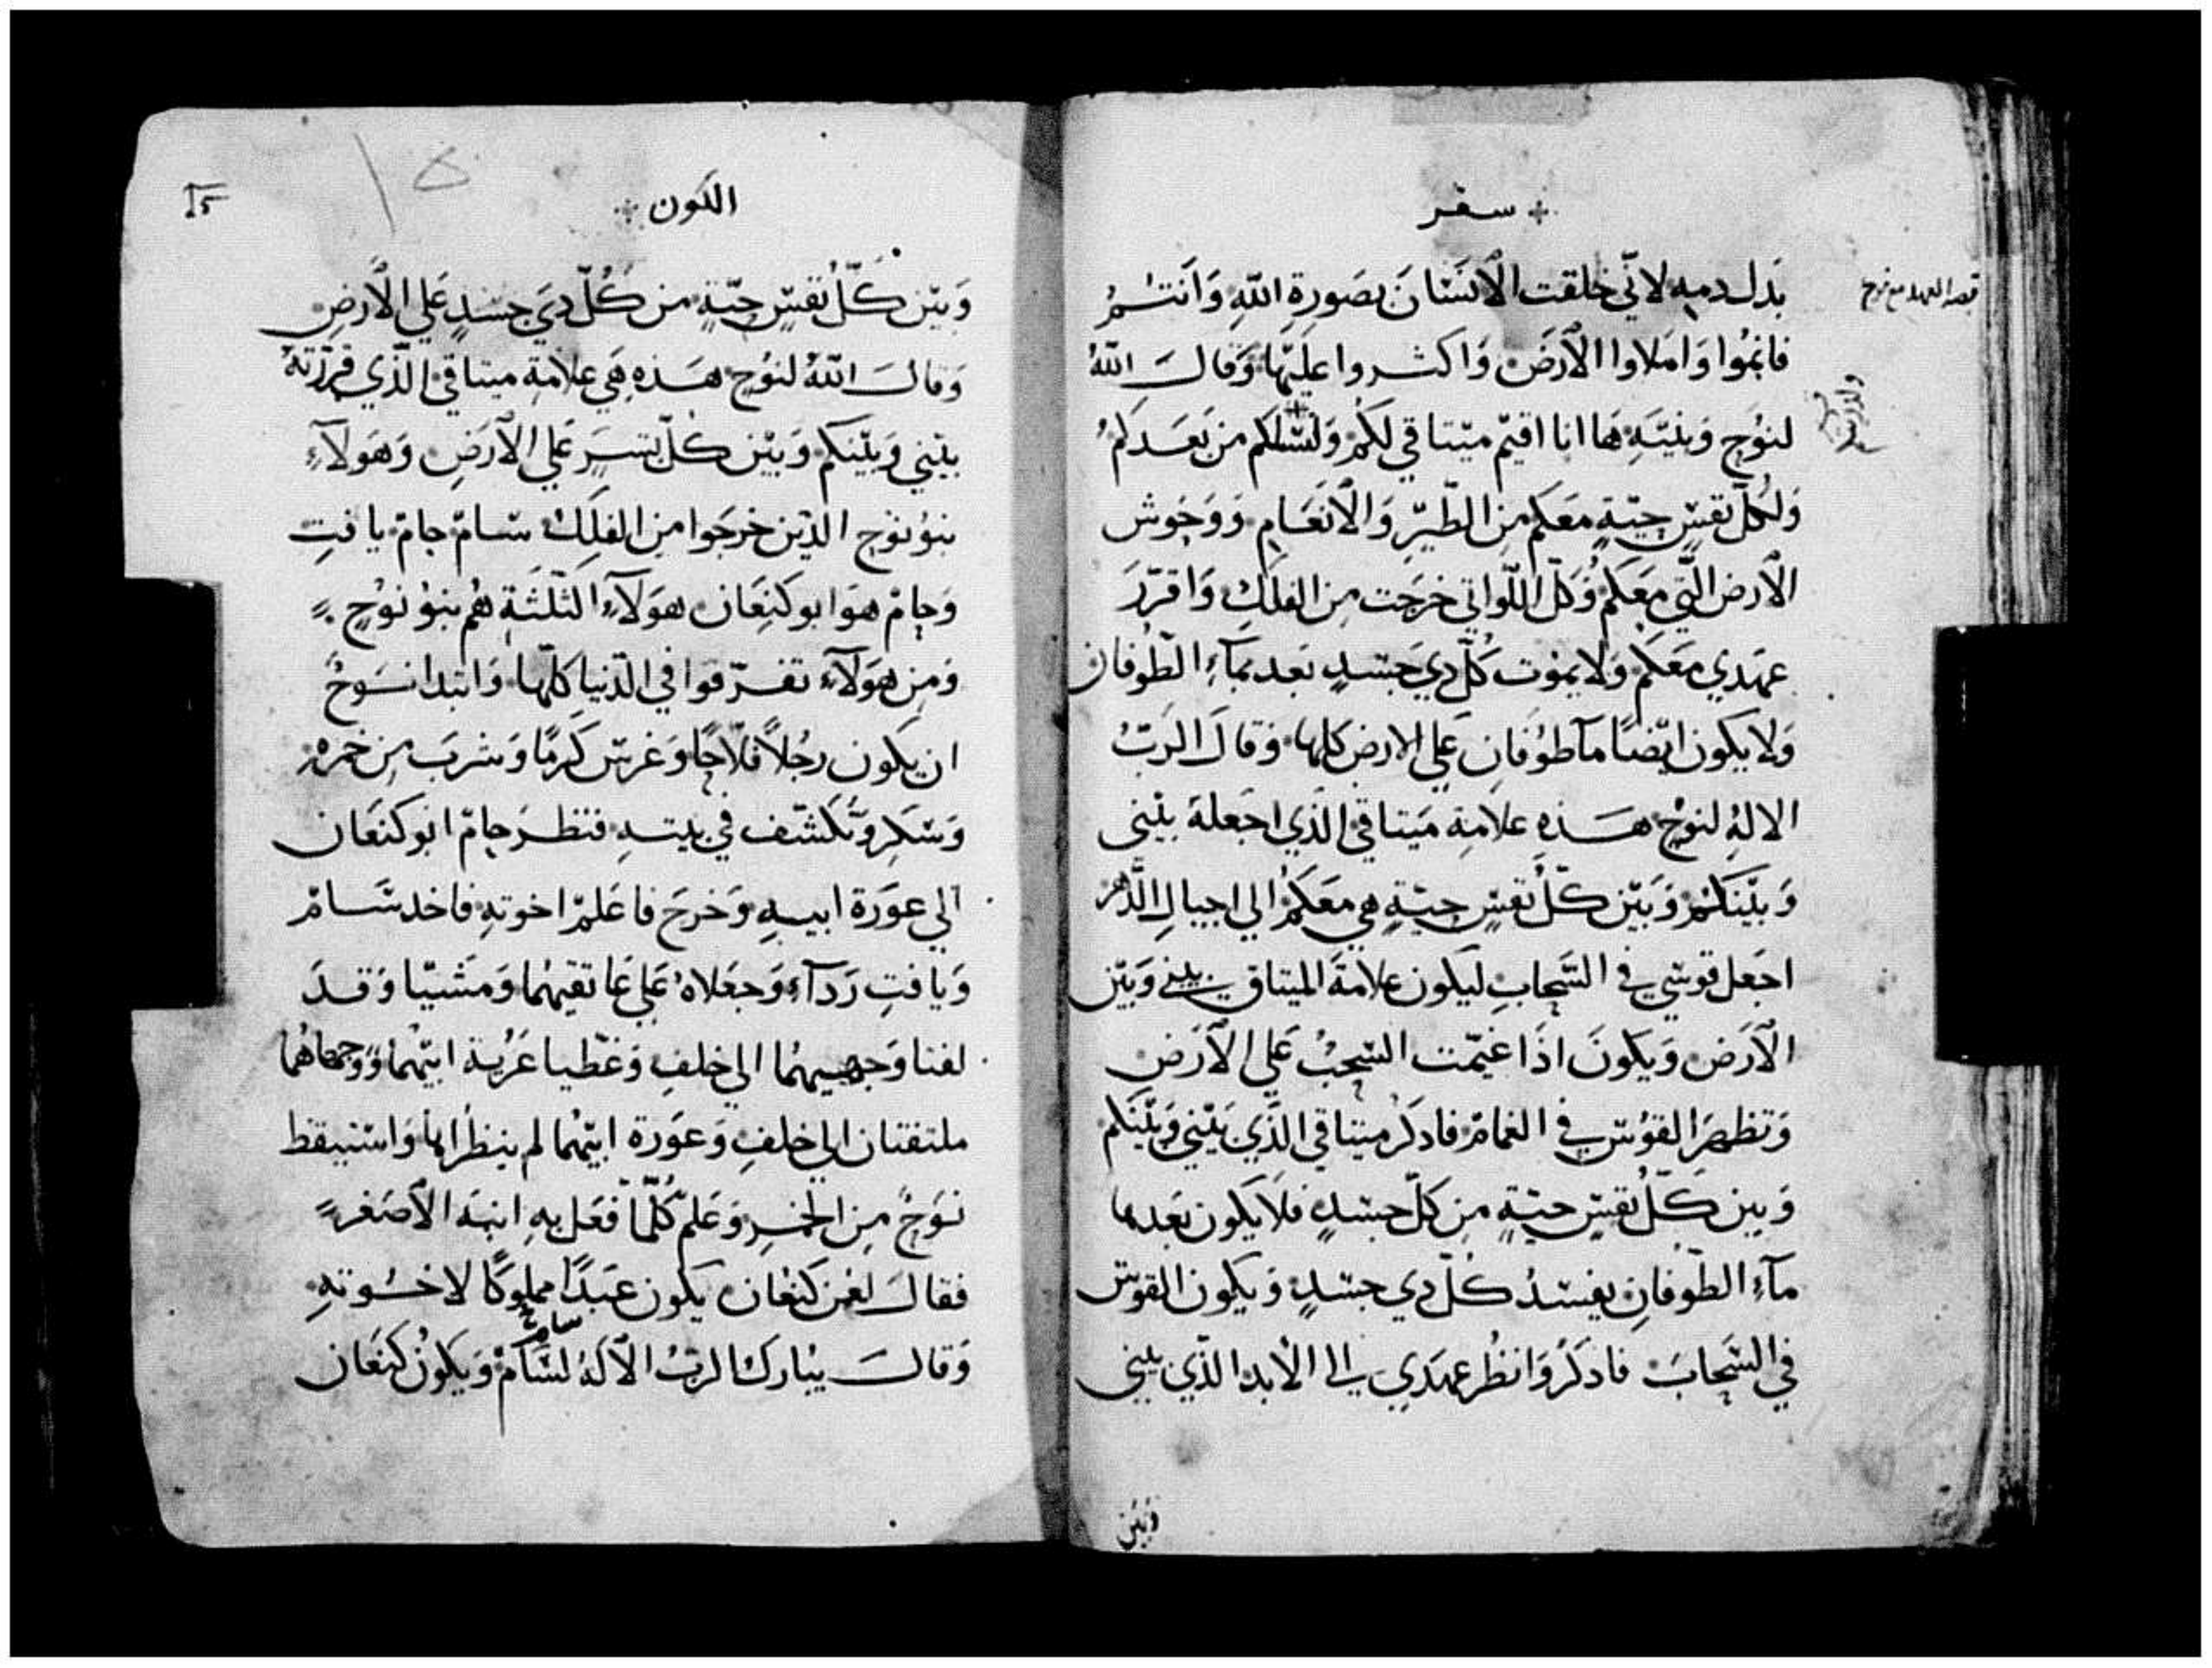 سفر
بدل دمه لاني خلقت الانسان بصورة الله وَانتم
فانموا وَاملاوا الارض وَاكثروا عليها وَقال الله
لنوح وَبنيه ها انا اقيم ميتاقي لكم وَنسلكم من بعدكم
وَلكل نفس حية معكم من الطير وَالانعام وَوحوش
الارض التي معكم وَكل اللواتي خرجت من الفلك وَاقرر
عهدي معكم وَلا يموت كل دي جسد بعد بمآء الطوفان
وَلا يكون ايضا مآ طوفان علي الارض كلها وَقال الرب
الاله لنوح هذه علامة ميتاقي الذي اجعله بيني
وَبينكم وَبين كل نفس حية هي معكم الي اجيال الدهر
اجعل قوسي في السحاب ليكون علامة الميتاق بيني وَبين
الارض وَيكون اذا غيمت السحب علي الارض
وَتظهر القوس في الغمام فادكر ميتاقي الذي بيني وَبينكم
وَبين كل نفس حية من كل جسد فلا يكون بعدها
مآء الطوفان يفسد كل دي جسد وَيكون القوس
في السحاب فادكر وَانظر عهدي الي الابد الذي بيني
وَبين
قصة العهد مع نوح
الكون
١٥
وَبين كل نفس حية من كل دي جسد علي الارض
وَقال الله لنوح هذه هي علامة ميتاقي الذي قررته
بيني وَبينكم وَبين كل بسر علي الارض وَهولآء
بنو نوح الذين خرجوا من الفلك سام حام يافت
وَحام هو ابو كنعان هولآء الثلثة هم بنو نوح
وَمن هولآء تفرقوا في الدنيا كلها وَابتدا نوح
ان يكون رجلا فلاحا وَغرس كرما وَشرب من خمره
وَسكر وَتكشف في بيته فنظر حام ابو كنعان
الي عورة ابيه وَخرج فاعلم اخوته فاخد سام
وَيافت ردآء وَجعلاه علي عاتقيهما وَمشيا وَقد
لفتا وَجهيهما الي خلف وَغطيا عرية ابيهما وَوجهاهما
ملتفتان الي خلف وَعورة ابيهما لم ينظراها وَاستيقظ
نوح من الخمر وَعلم كلما فعل به ابنه الاصغر
فقال لعن كنعان يكون عبدا مملوكا لاخوته
سام
وَقال يبارك الرب الاله لسام وَيكون كنعان